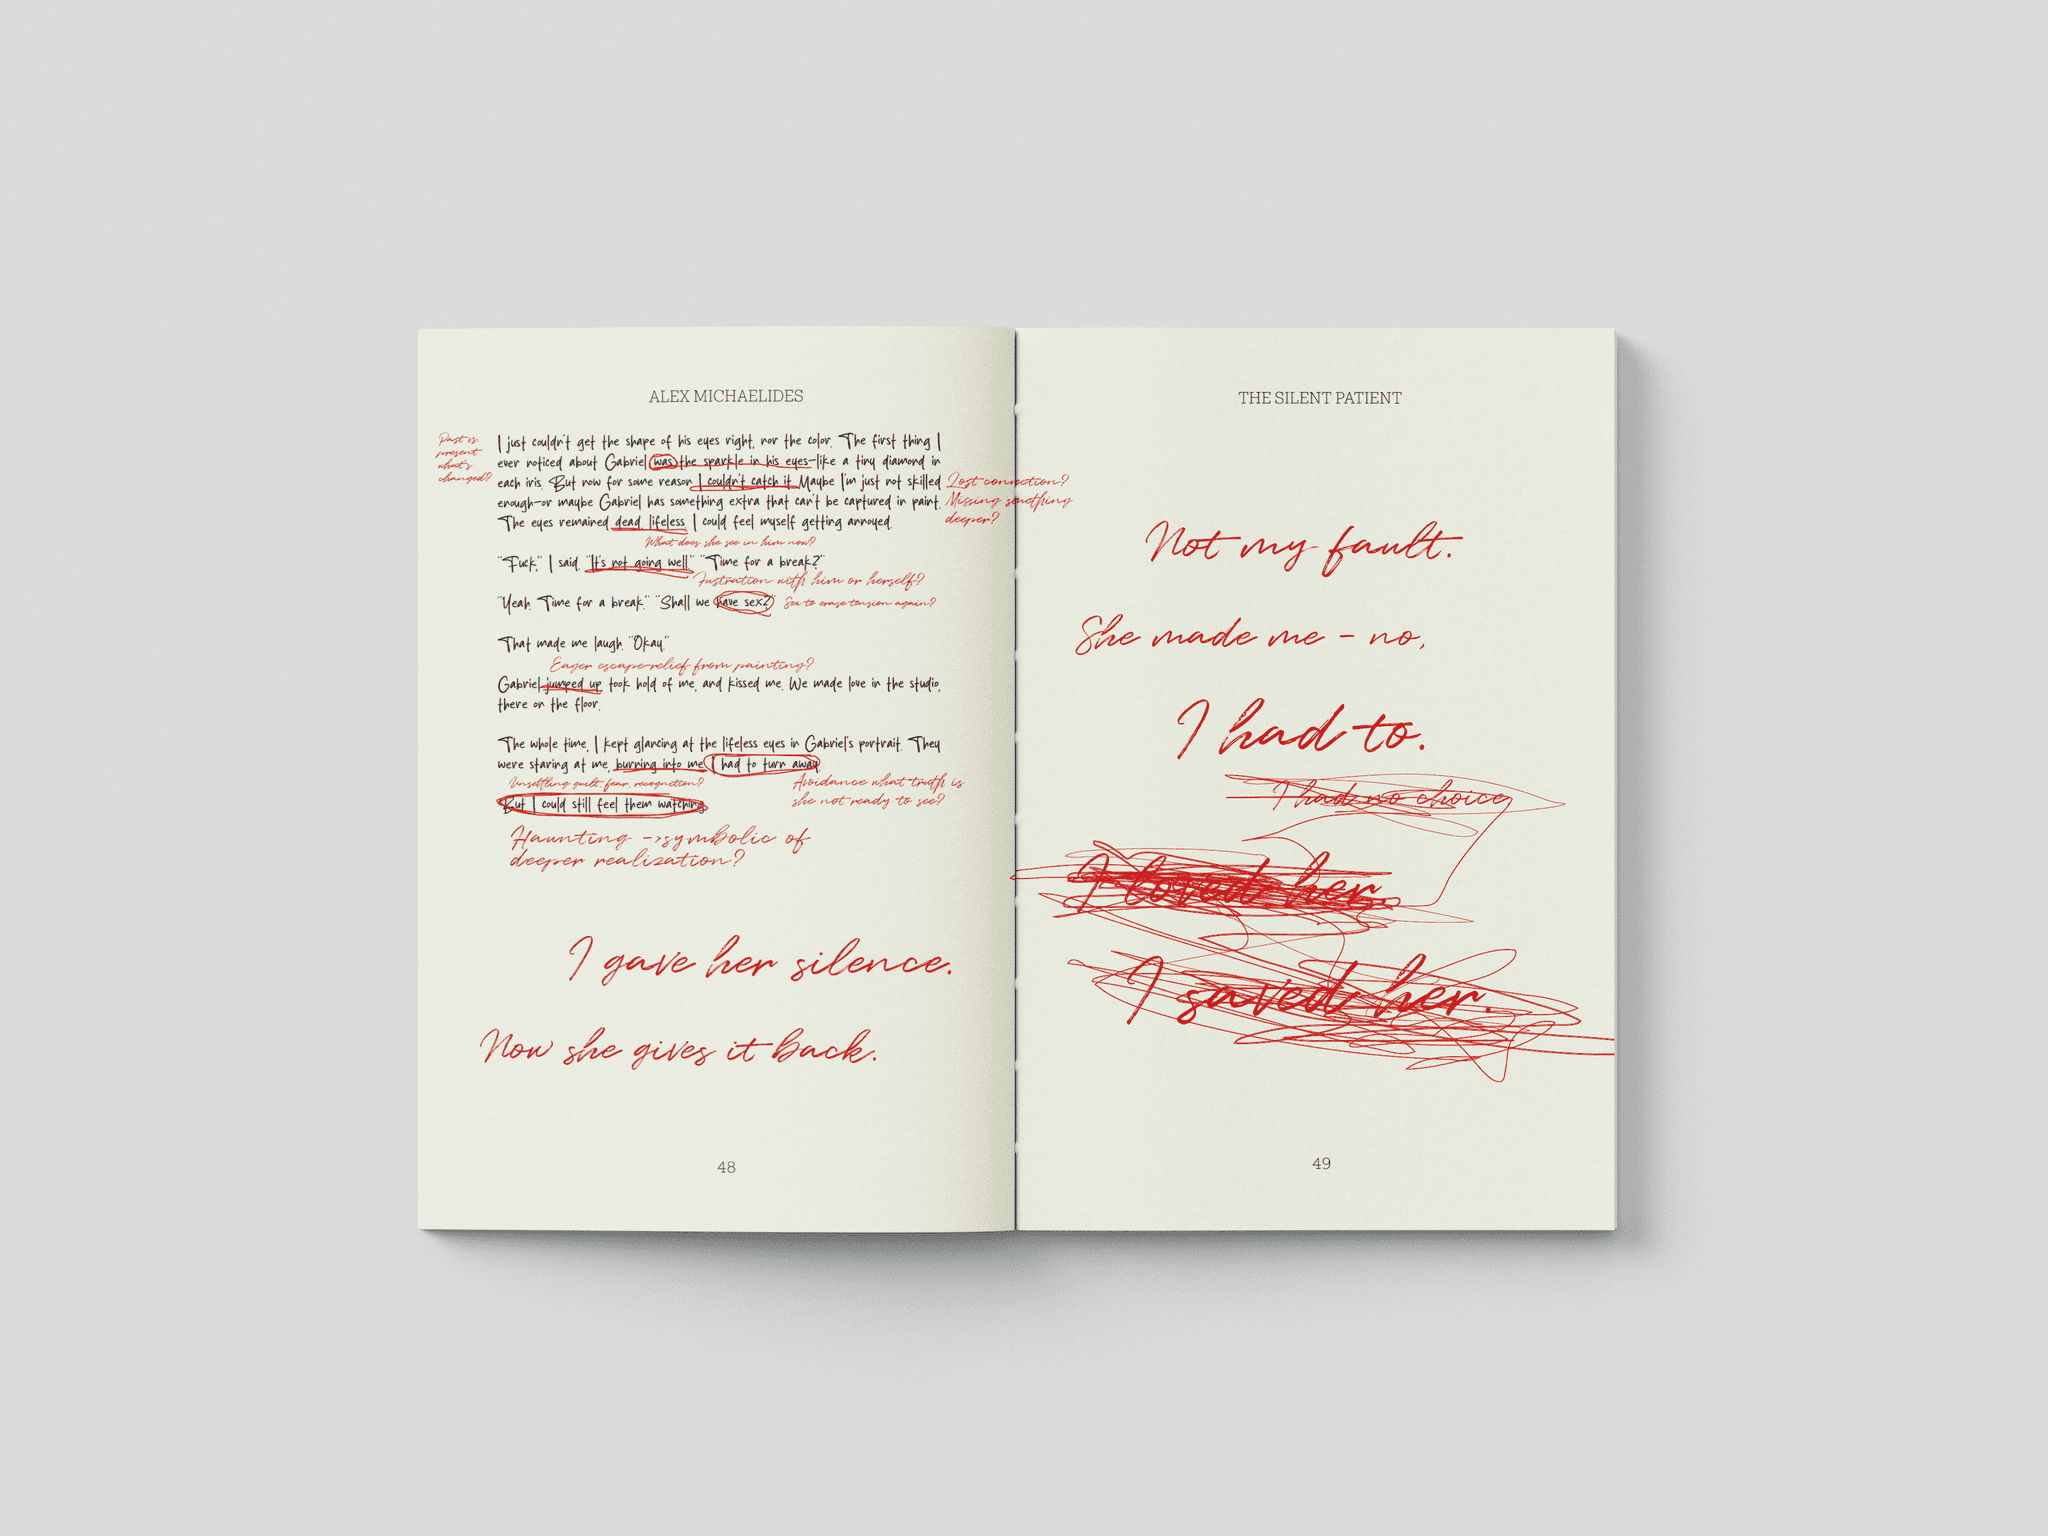 ALEX MICHAELIDES
Past vs.
present
what's
changed?
I just couldn't get the shape of his eyes right, nor the color. The first thing I
ever noticed about Gabriel was the sparkle in his eyes—like a tiny diamond in
each iris. But now for some reason I couldn't catch it. Maybe I'm just not skilled
enough—or maybe Gabriel has something extra that can't be captured in paint.
The eyes remained dead, lifeless. I could feel myself getting annoyed.
Lost connection?
Missing something
deeper?
What does she see in him now?
"Fuck," I said. "It's not going well." "Time for a break?"
Fustration with him or herself?
"Yeah. Time for a break." "Shall we have sex?"
Sex to erase tension again?
That made me laugh. "Okay."
Eager escape-relief from painting?
Gabriel jumped up, took hold of me, and kissed me. We made love in the studio,
there on the floor.
The whole time, I kept glancing at the lifeless eyes in Gabriel's portrait. They
were staring at me, burning into me. I had to turn away.
Unsettling guilt, fear, recognition?
Avoidance what truth is
she not ready to see?
But I could still feel them watching.
Haunting ->symbolic of
deeper realization?
I gave her silence.
Now she gives it back.
48
THE SILENT PATIENT
Not my fault.
She made me - no,
I had to.
I had no choice
I loved her.
I saved her.
49